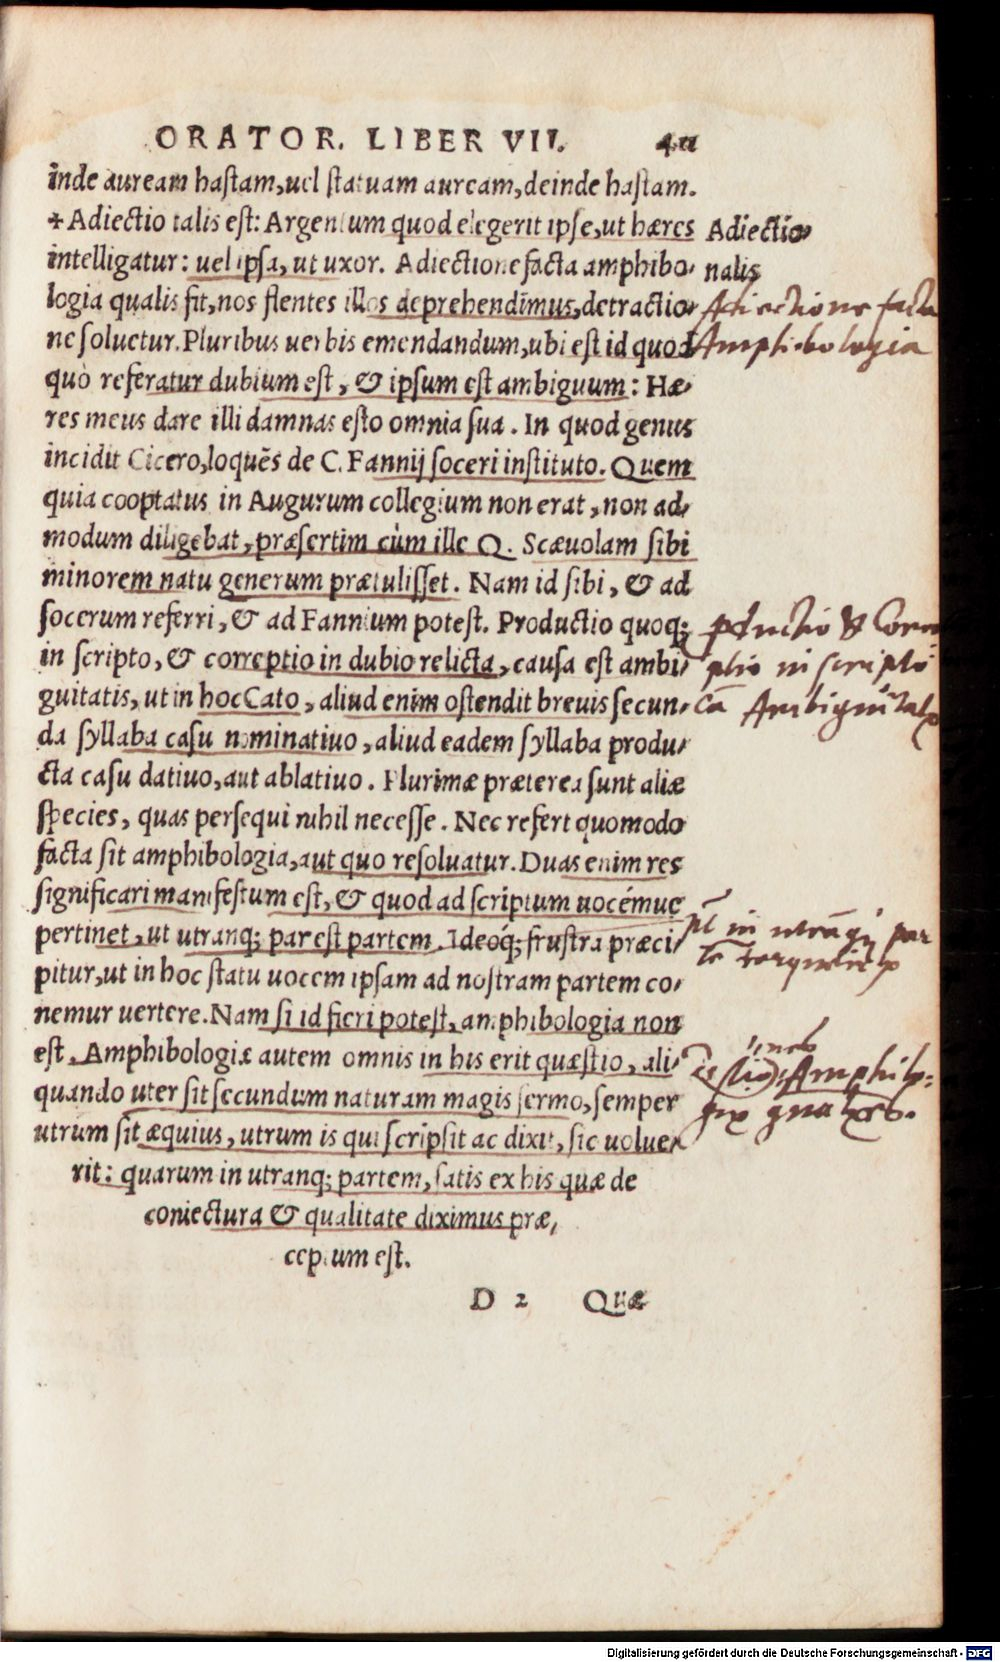 ORATOR. LIBER VII.
inde auream hastam, uel statuam auream, deinde hastam.
+ Adiectio talis est: Argentum quod elegerit ipse, ut hæres
Adiectio
intelligatur: uel ipsa, ut uxor. Adiectione facta amphibo-
nalis
logia qualis fit, nos flentes illos deprehendimus, detractio-
Adiectione facta
ne soluetur. Pluribus uerbis emendandum, ubi est id quod
Amphibologia
quò referatur dubium est, & ipsum est ambiguum: Hæ-
res meus dare illi damnas esto omnia sua. In quod genus
incidit Cicero, loquẽs de C. Fannij soceri instituto. Quem
quia cooptatus in Augurum collegium non erat, non ad-
modum diligebat, præsertim cùm ille Q. Scæuolam sibi
minorem natu generum prætulisset. Nam id sibi, & ad
socerum referri, & ad Fannium potest. Productio quoq;
in scripto, & correptio in dubio relicta, causa est ambi-
in scripto
guitatis, ut in hoc Cato, aliud enim ostendit breuis secun-
da syllaba casu nominatiuo, aliud eadem syllaba produ-
cta casu datiuo, aut ablatiuo. Plurimæ præterea sunt aliæ
species, quas persequi nihil necesse. Nec refert quomodo
facta sit amphibologia, aut quo resoluatur. Duas enim res
significari manifestum est, & quod ad scriptum uocémue
pertinet, ut utranq; par est partem. Ideóq; frustra præci-
in utrãq; par
pitur, ut in hoc statu uocem ipsam ad nostram partem co-
nemur uertere. Nam si id fieri potest, amphibologia non
est. Amphibologiæ autem omnis in his erit quæstio, ali-
quando uter sit secundum naturam magis sermo, semper
utrum sit æquius, utrum is qui scripsit ac dixit, sic uolue-
rit: quarum in utranq; partem, satis ex his quæ de
coniectura & qualitate diximus præ-
ceptum est.
D 2 Quæ
Digitalisierung gefördert durch die Deutsche Forschungsgemeinschaft - DFG